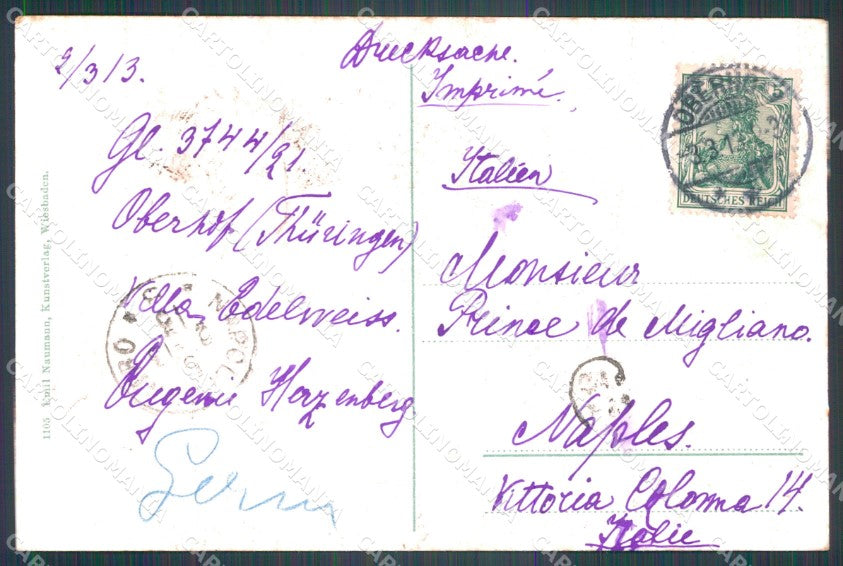 2/3 13.
Drucksache.
Imprimé.
Gl. 3744/21.
Oberhof (Thüringen)
Villa Edelweiss.
Eugenie Herzenberg
Italien
Monsieur
Prince de Migliano.
Naples.
Vittoria Colonna 14.
Italie
1105 Emil Naumann, Kunstverlag, Wiesbaden.
DEUTSCHES REICH
CARTOLINOMANIA